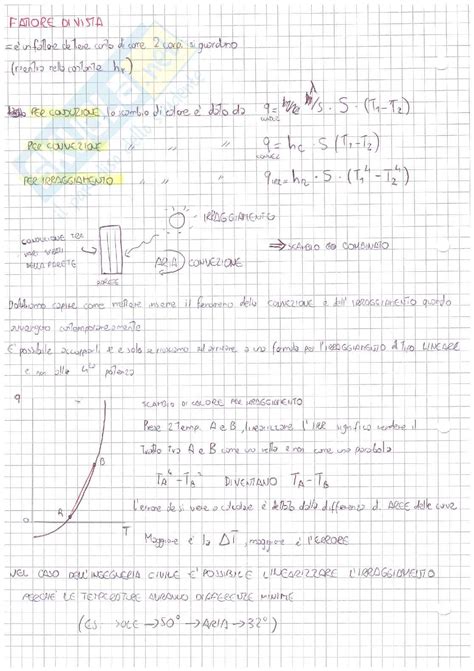 FATTORE DI VISTA
= è un fattore che tiene conto di come 2 corpi si guardano
(rientra nella costante hr)
PER CONDUZIONE, lo scambio di calore è dato da q = λ/s · S · (T1 - T2)
PER CONVEZIONE " " " q = hc · S (T1 - T2)
PER IRRAGGIAMENTO " " " q = hr · S · (T1^4 - T2^4)
IRRAGGIAMENTO
CONDUZIONE TRA
VARI
DELLA PARETE
PARETE
ARIA
CONVEZIONE
⇒ SCAMBIO COMBINATO
Dobbiamo capire come mettere insieme il fenomeno della CONVEZIONE e dell'IRRAGGIAMENTO quando
avvengono contemporaneamente
È possibile accorparli se e solo se riusciamo ad arrivare a una formula per l'IRRAGGIAMENTO di tipo LINEARE
e non alla 4° potenza
q
SCAMBIO DI CALORE PER IRRAGGIAMENTO
Prese 2 Temp. A e B, linearizzare l'IRR significa vedere il
tratto tra A e B come una retta e non come una parabola
B
A
0
T
DIVENTANO TA - TB
l'errore che si viene a è dettato dalla differenza di AREE delle curve
Maggiore è la ΔT, maggiore è l'ERRORE
NEL CASO DELL'INGEGNERIA CIVILE È POSSIBILE LINEARIZZARE L'IRRAGGIAMENTO
PERCHÉ LE TEMPERATURE AVRANNO DIFFERENZE MINIME
(ES. SOLE → 50° → ARIA → 32°)